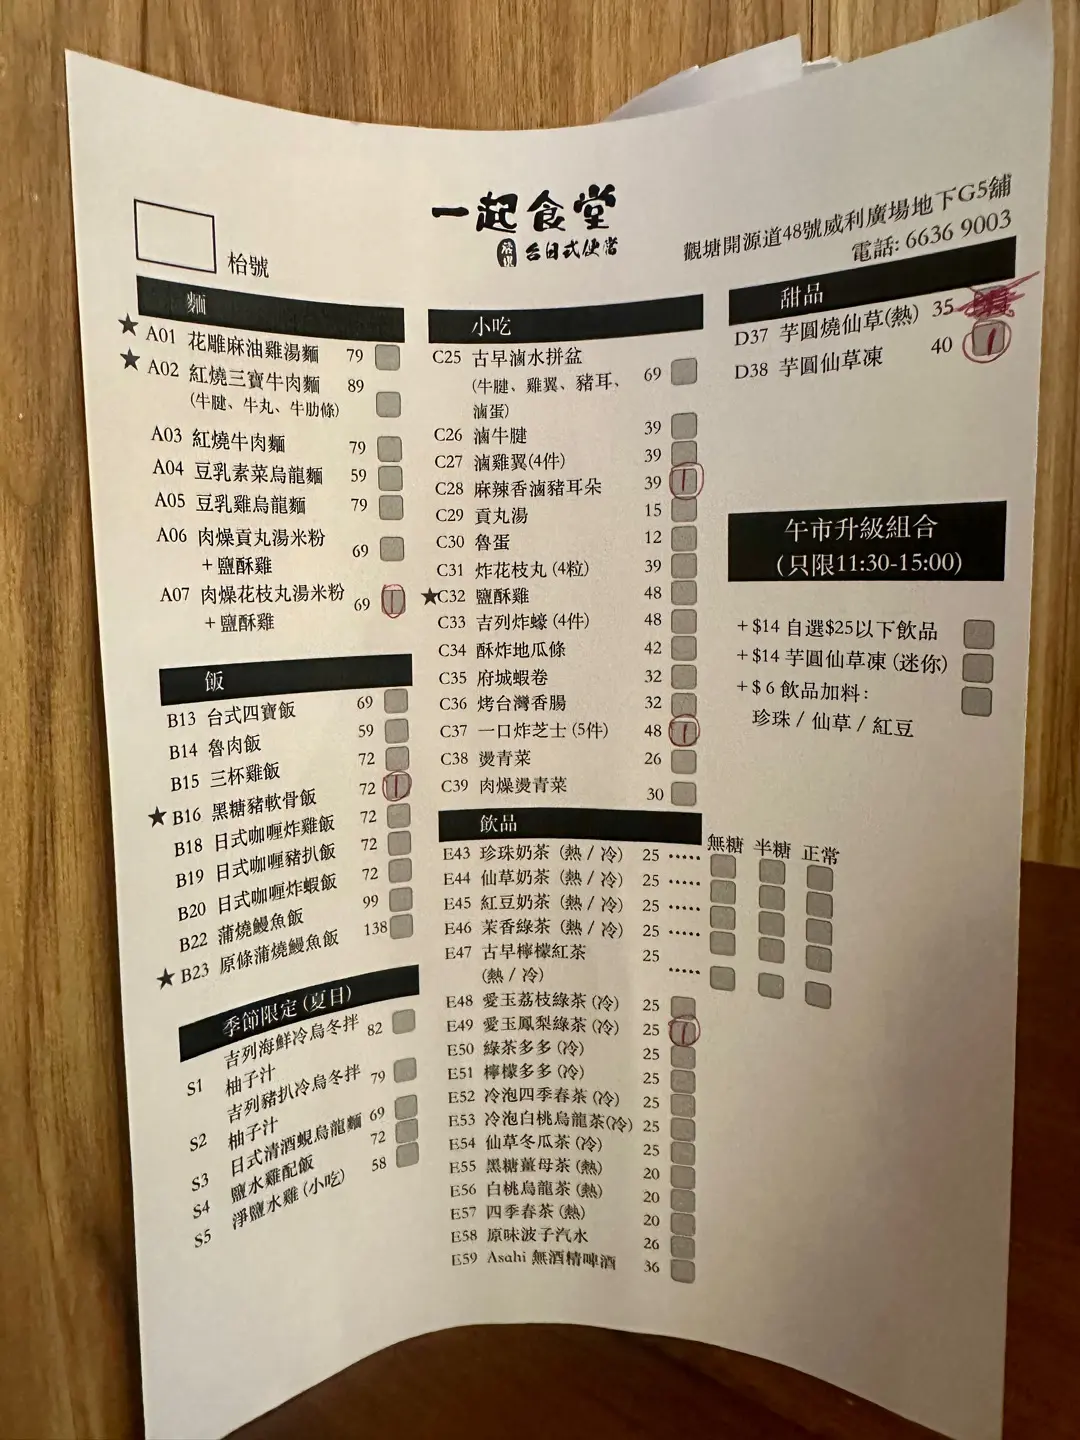 一起食堂
台日式便當
觀塘開源道48號威利廣場地下G5舖
電話: 6636 9003
枱號
麵
★ A01 花雕麻油雞湯麵 79
★ A02 紅燒三寶牛肉麵 89
(牛腱、牛丸、牛肋條)
A03 紅燒牛肉麵 79
A04 豆乳素菜烏龍麵 59
A05 豆乳雞烏龍麵 79
A06 肉燥貢丸湯米粉 69
+ 鹽酥雞
A07 肉燥花枝丸湯米粉 69 1
+ 鹽酥雞
飯
B13 台式四寶飯 69
B14 魯肉飯 59
B15 三杯雞飯 72
★ B16 黑糖豬軟骨飯 72 1
B18 日式咖喱炸雞飯 72
B19 日式咖喱豬扒飯 72
B20 日式咖喱炸蝦飯 72
B22 蒲燒鰻魚飯 99
★ B23 原條蒲燒鰻魚飯 138
季節限定 (夏日)
S1 吉列海鮮冷烏冬拌 82
柚子汁
S2 吉列豬扒冷烏冬拌 79
柚子汁
S3 日式清酒蜆烏龍麵 69
S4 鹽水雞配飯 72
S5 淨鹽水雞 (小吃) 58
小吃
C25 古早滷水拼盆 69
(牛腱、雞翼、豬耳、
滷蛋)
C26 滷牛腱 39
C27 滷雞翼(4件) 39
C28 麻辣香滷豬耳朵 39 1
C29 貢丸湯 15
C30 魯蛋 12
C31 炸花枝丸 (4粒) 39
★ C32 鹽酥雞 48
C33 吉列炸蠔 (4件) 48
C34 酥炸地瓜條 42
C35 府城蝦卷 32
C36 烤台灣香腸 32
C37 一口炸芝士 (5件) 48 1
C38 燙青菜 26
C39 肉燥燙青菜 30
飲品
無糖 半糖 正常
E43 珍珠奶茶 (熱 / 冷) 25 .....
E44 仙草奶茶 (熱 / 冷) 25 .....
E45 紅豆奶茶 (熱 / 冷) 25 .....
E46 茉香綠茶 (熱 / 冷) 25 .....
E47 古早檸檬紅茶 25 .....
(熱 / 冷)
E48 愛玉荔枝綠茶 (冷) 25
E49 愛玉鳳梨綠茶 (冷) 25 1
E50 綠茶多多 (冷) 25
E51 檸檬多多 (冷) 25
E52 冷泡四季春茶 (冷) 25
E53 冷泡白桃烏龍茶(冷) 25
E54 仙草冬瓜茶 (冷) 25
E55 黑糖薑母茶 (熱) 20
E56 白桃烏龍茶 (熱) 20
E57 四季春茶 (熱) 20
E58 原味波子汽水 26
E59 Asahi 無酒精啤酒 36
甜品
D37 芋圓燒仙草(熱) 35
D38 芋圓仙草凍 40 1
午市升級組合
(只限11:30-15:00)
+ $14 自選$25以下飲品
+ $14 芋圓仙草凍 (迷你)
+ $ 6 飲品加料:
珍珠 / 仙草 / 紅豆